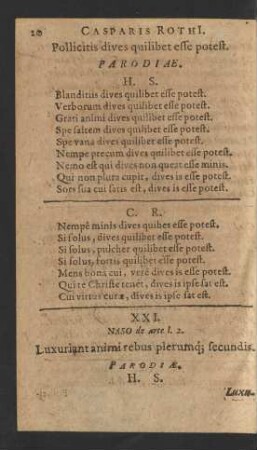 20 CASPARIS ROTHI.
Pollicitis dives quilibet esse potest.
PARODIÆ.
H. S.
Blanditiis dives quilibet esse potest.
Verborum dives quilibet esse potest.
Grati animi dives quilibet esse potest.
Spe saltem dives quilibet esse potest.
Spe vana dives quilibet esse potest.
Nempe precum dives quilibet esse potest.
Nemo est qui dives non queat esse minis.
Qui non plura cupit, dives is esse potest.
Sors sua cui satis est, dives is esse potest.
C. R.
Nempè minis dives quibes esse potest.
Si solus, dives quilibet esse potest.
Si solus, pulcher quilibet esse potest.
Si solus, fortis quilibet esse potest.
Mens bona cui, verè dives is esse potest.
Qui te Christe tenet, dives is ipse sat est.
Cui virtus curæ, dives is ipse sat est.
XXI.
NASO de arte l. 2.
Luxuriant animi rebus plerumq; secundis.
PARODIÆ.
H. S.
Luxu-